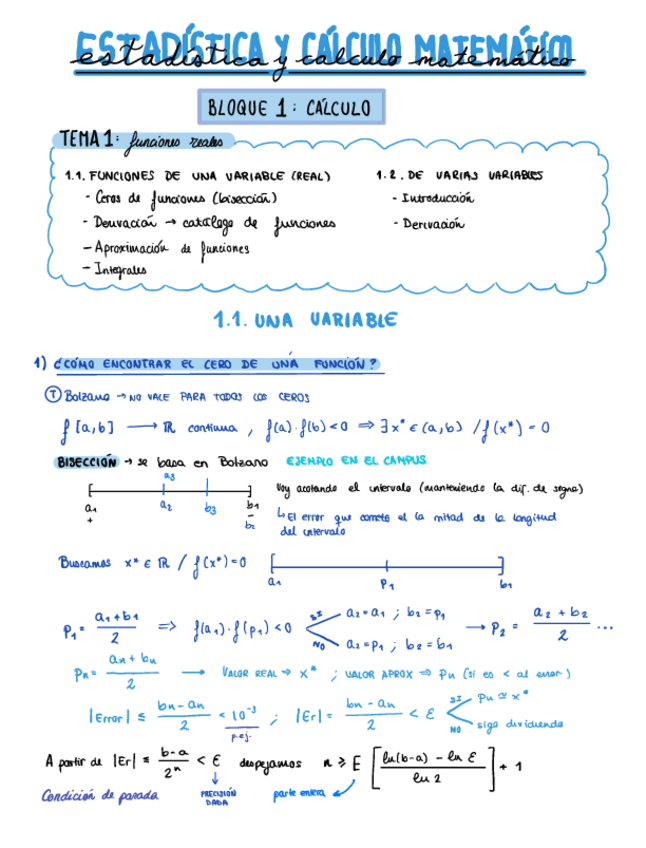 ESTADÍSTICA Y CÁLCULO MATEMÁTICO
estadística y cálculo matemático
BLOQUE 1: CÁLCULO
TEMA 1: funciones reales
1.1. FUNCIONES DE UNA VARIABLE (REAL)
- Ceros de funciones (bisección)
- Derivación → catálogo de funciones
- Aproximación de funciones
- Integrales
1.2. DE VARIAS VARIABLES
- Introducción
- Derivación
1.1. UNA VARIABLE
1) ¿CÓMO ENCONTRAR EL CERO DE UNA FUNCIÓN?
T Bolzano → NO VALE PARA TODOS LOS CEROS
f [a,b] → ℝ continua, f(a)·f(b)<0 ⇒ ∃ x* ∈ (a,b) / f(x*) = 0
BISECCIÓN → se basa en Bolzano EJEMPLO EN EL CAMPUS
a3
a1 a2 b3 b1
+ -
b2
Voy acotando el intervalo (manteniendo la dif. de signo)
↳ El error que cometo es la mitad de la longitud
del intervalo
Buscamos x* ∈ ℝ / f(x*)=0
a1 P1 b1
P1 = (a1+b1)/2 ⇒ f(a1)·f(p1)<0 SI a2=a1 ; b2=p1 NO a2=p1 ; b2=b1 → P2 = (a2+b2)/2 ...
Pn = (an+bn)/2 → VALOR REAL ⇒ x* ; VALOR APROX ⇒ Pn (si es < al error)
|Error| ≤ (bn-an)/2 < 10⁻³ ; |Er| = (bn-an)/2 < ε SI Pn ≅ x* NO sigo dividiendo
p.ej.
A partir de |Er| ≤ (b-a)/2ⁿ < ε despejamos n ≥ E [(ln(b-a) - ln ε)/ln 2] + 1
Condición de parada PRECISIÓN DADA parte entera